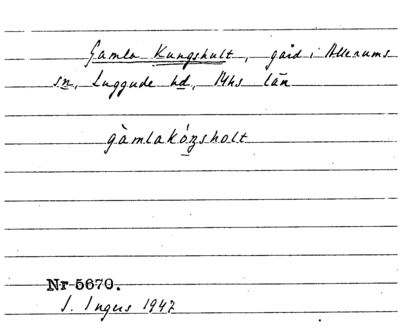 Gamla Kungshult, gård i Allerums
sn, Luggude hd, Mhs län
gàmlakóŋsholt
Nr 5670.
I. Ingers 1947